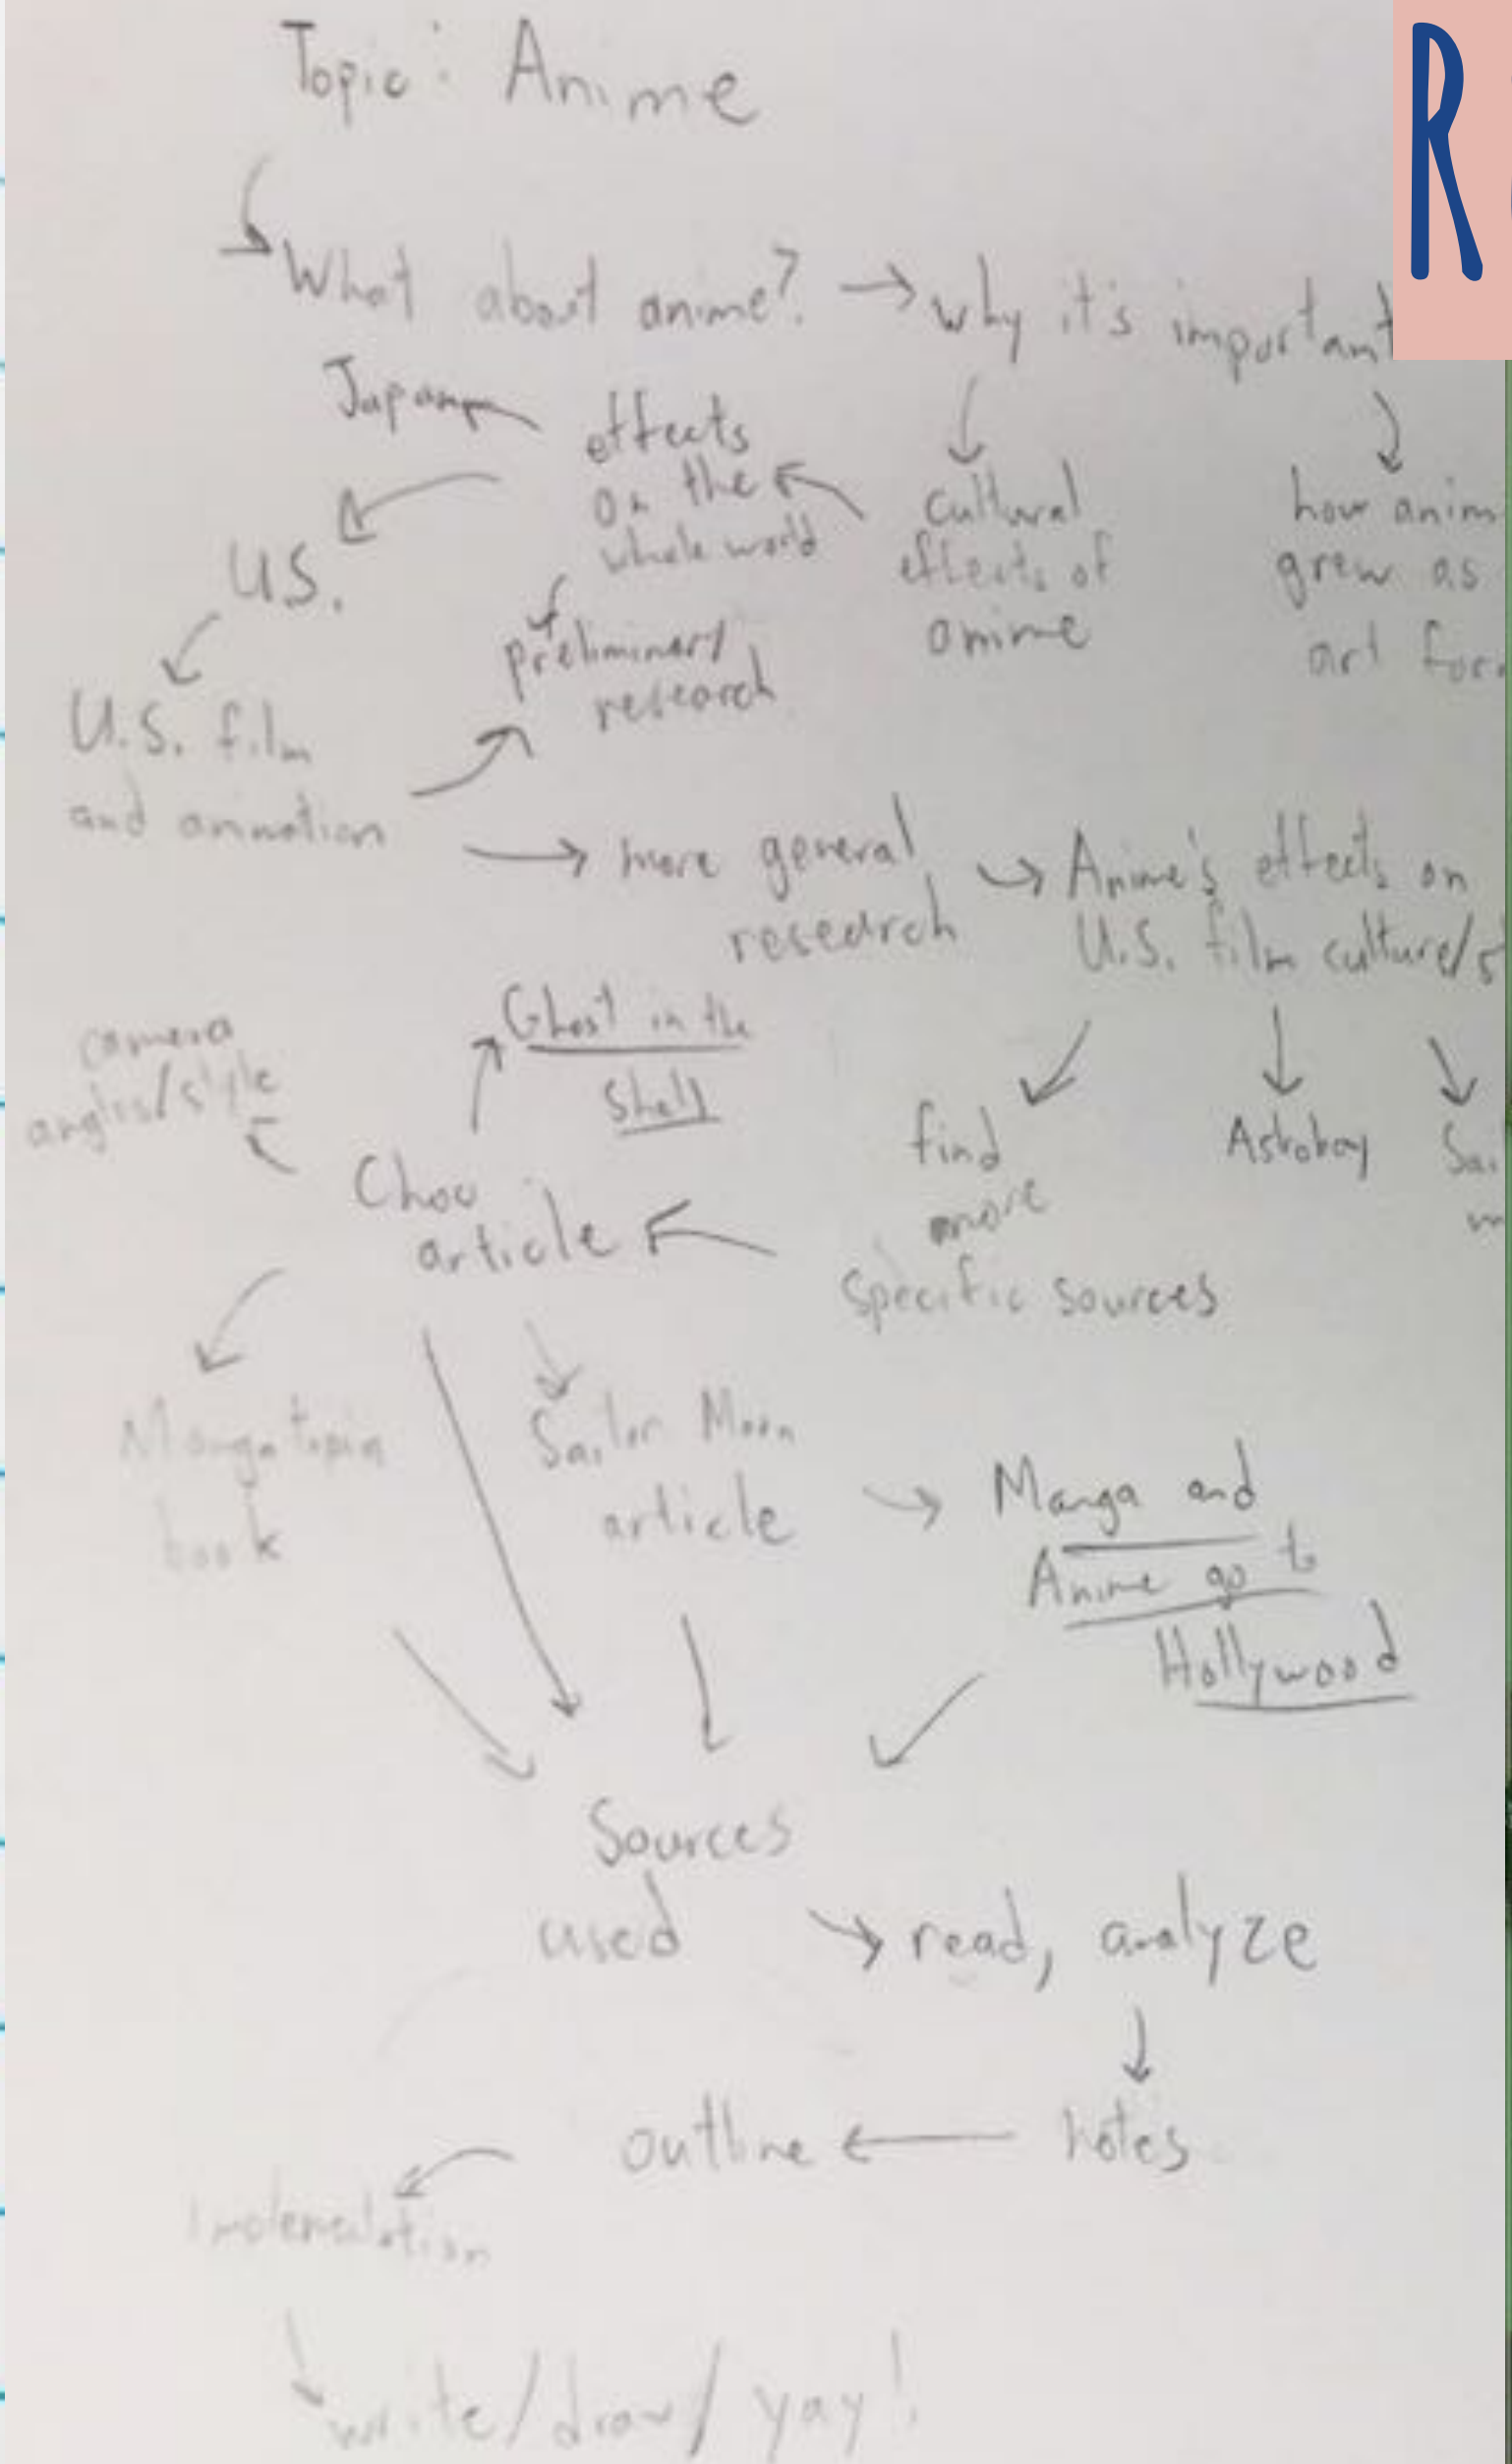 Topic: Anime
R
What about anime? → why it's important
Japan
effects
on the
whole world
cultural
effects of
anime
how anim
grew as
art for
U.S.
preliminary
research
U.S. film
and animation
more general
research
Anime's effects on
U.S. film culture/s
Ghost in the
Shell
camera
angles/style
find
more
specific sources
Astroboy
Sai
m
Chou
article
Mangatopia
book
Sailor Moon
article
Manga and
Anime go to
Hollywood
Sources
used
read, analyze
notes
outline
write/draw/yay!